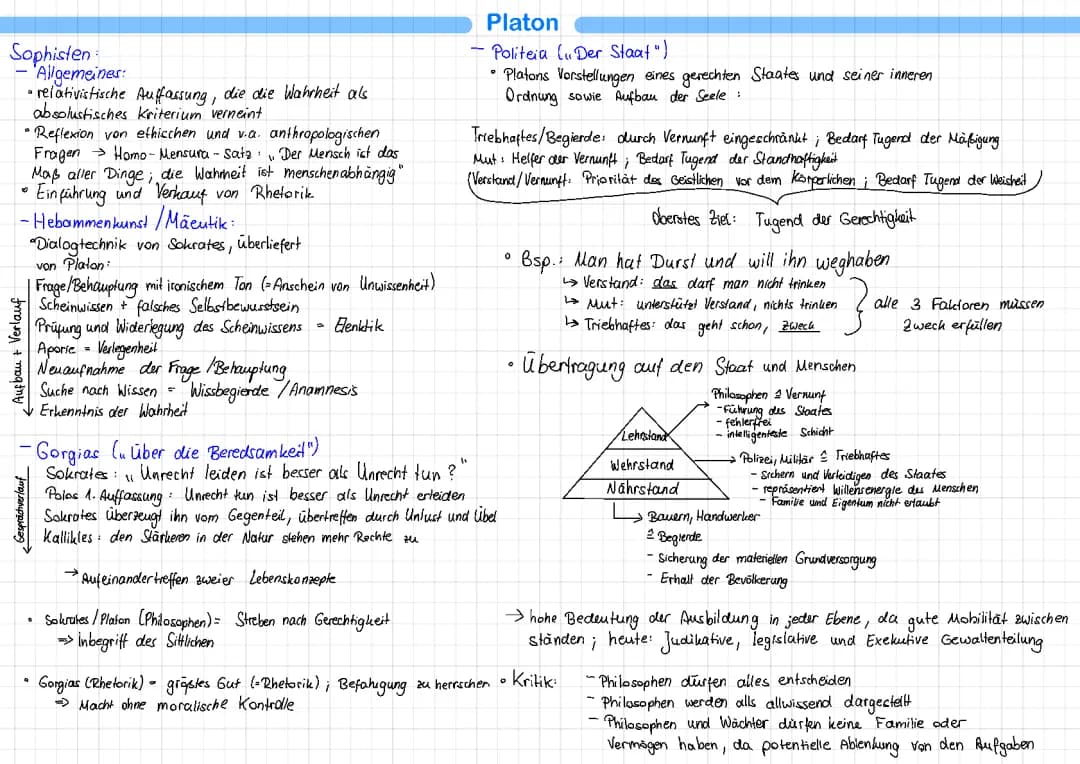 Platon
Sophisten:
- Allgemeines:
• relativistische Auffassung, die die Wahrheit als
absolustisches Kriterium verneint
• Reflexion von ethischen und v.a. anthropologischen
Fragen → Homo-Mensura-Satz: „Der Mensch ist das
Maß aller Dinge; die Wahrheit ist menschenabhängig"
• Einführung und Verkauf von Rhetorik
- Hebammenkunst/Mäeutik:
• Dialogtechnik von Sokrates, überliefert
von Platon:
Aufbau + Verlauf
Frage/Behauptung mit ironischem Ton (=Anschein von Unwissenheit)
Scheinwissen + falsches Selbstbewusstsein
Prüfung und Widerlegung des Scheinwissens = Elenktik
Aporie = Verlegenheit
Neuaufnahme der Frage/Behauptung
Suche nach Wissen = Wissbegierde/Anamnesis
Erkenntnis der Wahrheit
- Gorgias („Über die Beredsamkeit")
Gesprächverlauf
Sokrates: „Unrecht leiden ist besser als Unrecht tun?"
Polos 1. Auffassung: Unrecht tun ist besser als Unrecht erleiden
Sokrates überzeugt ihn vom Gegenteil, übertreffen durch Unlust und Übel
Kallikles: den Stärkeren in der Natur stehen mehr Rechte zu
→ Aufeinandertreffen zweier Lebenskonzepte
• Sokrates/Platon (Philosophen) = Streben nach Gerechtigkeit
⇒ Inbegriff des Sittlichen
• Gorgias (Rhetorik) = größtes Gut (=Rhetorik); Befähigung zu herrschen
⇒ Macht ohne moralische Kontrolle
- Politeia („Der Staat")
• Platons Vorstellungen eines gerechten Staates und seiner inneren
Ordnung sowie Aufbau der Seele:
Triebhaftes/Begierde: durch Vernunft eingeschränkt; Bedarf Tugend der Mäßigung
Mut: Helfer der Vernunft; Bedarf Tugend der Standhaftigkeit
Verstand/Vernunft: Priorität des Geistlichen vor dem Körperlichen; Bedarf Tugend der Weisheit
Oberstes Ziel: Tugend der Gerechtigkeit
• Bsp.: Man hat Durst und will ihn weghaben
↳ Verstand: das darf man nicht trinken
↳ Mut: unterstützt Verstand, nichts trinken
↳ Triebhaftes: das geht schon, Zweck
alle 3 Faktoren müssen
Zweck erfüllen
• Übertragung auf den Staat und Menschen
Lehrstand
Wehrstand
Nährstand
Philosophen ≙ Vernunf
- Führung des Staates
- fehlerfrei
- intelligenteste Schicht
Polizei, Militär ≙ Triebhaftes
- Sichern und Verteidigen des Staates
- repräsentiert Willensenergie des Menschen
- Familie und Eigentum nicht erlaubt
Bauern, Handwerker
≙ Begierde
- Sicherung der materiellen Grundversorgung
- Erhalt der Bevölkerung
→ hohe Bedeutung der Ausbildung in jeder Ebene, da gute Mobilität zwischen
ständen; heute: Judikative, legislative und Exekutive Gewaltenteilung
• Kritik:
- Philosophen dürfen alles entscheiden
- Philosophen werden alls allwissend dargestellt
- Philosophen und Wächter dürfen keine Familie oder
Vermögen haben, da potentielle Ablenkung von den Aufgaben